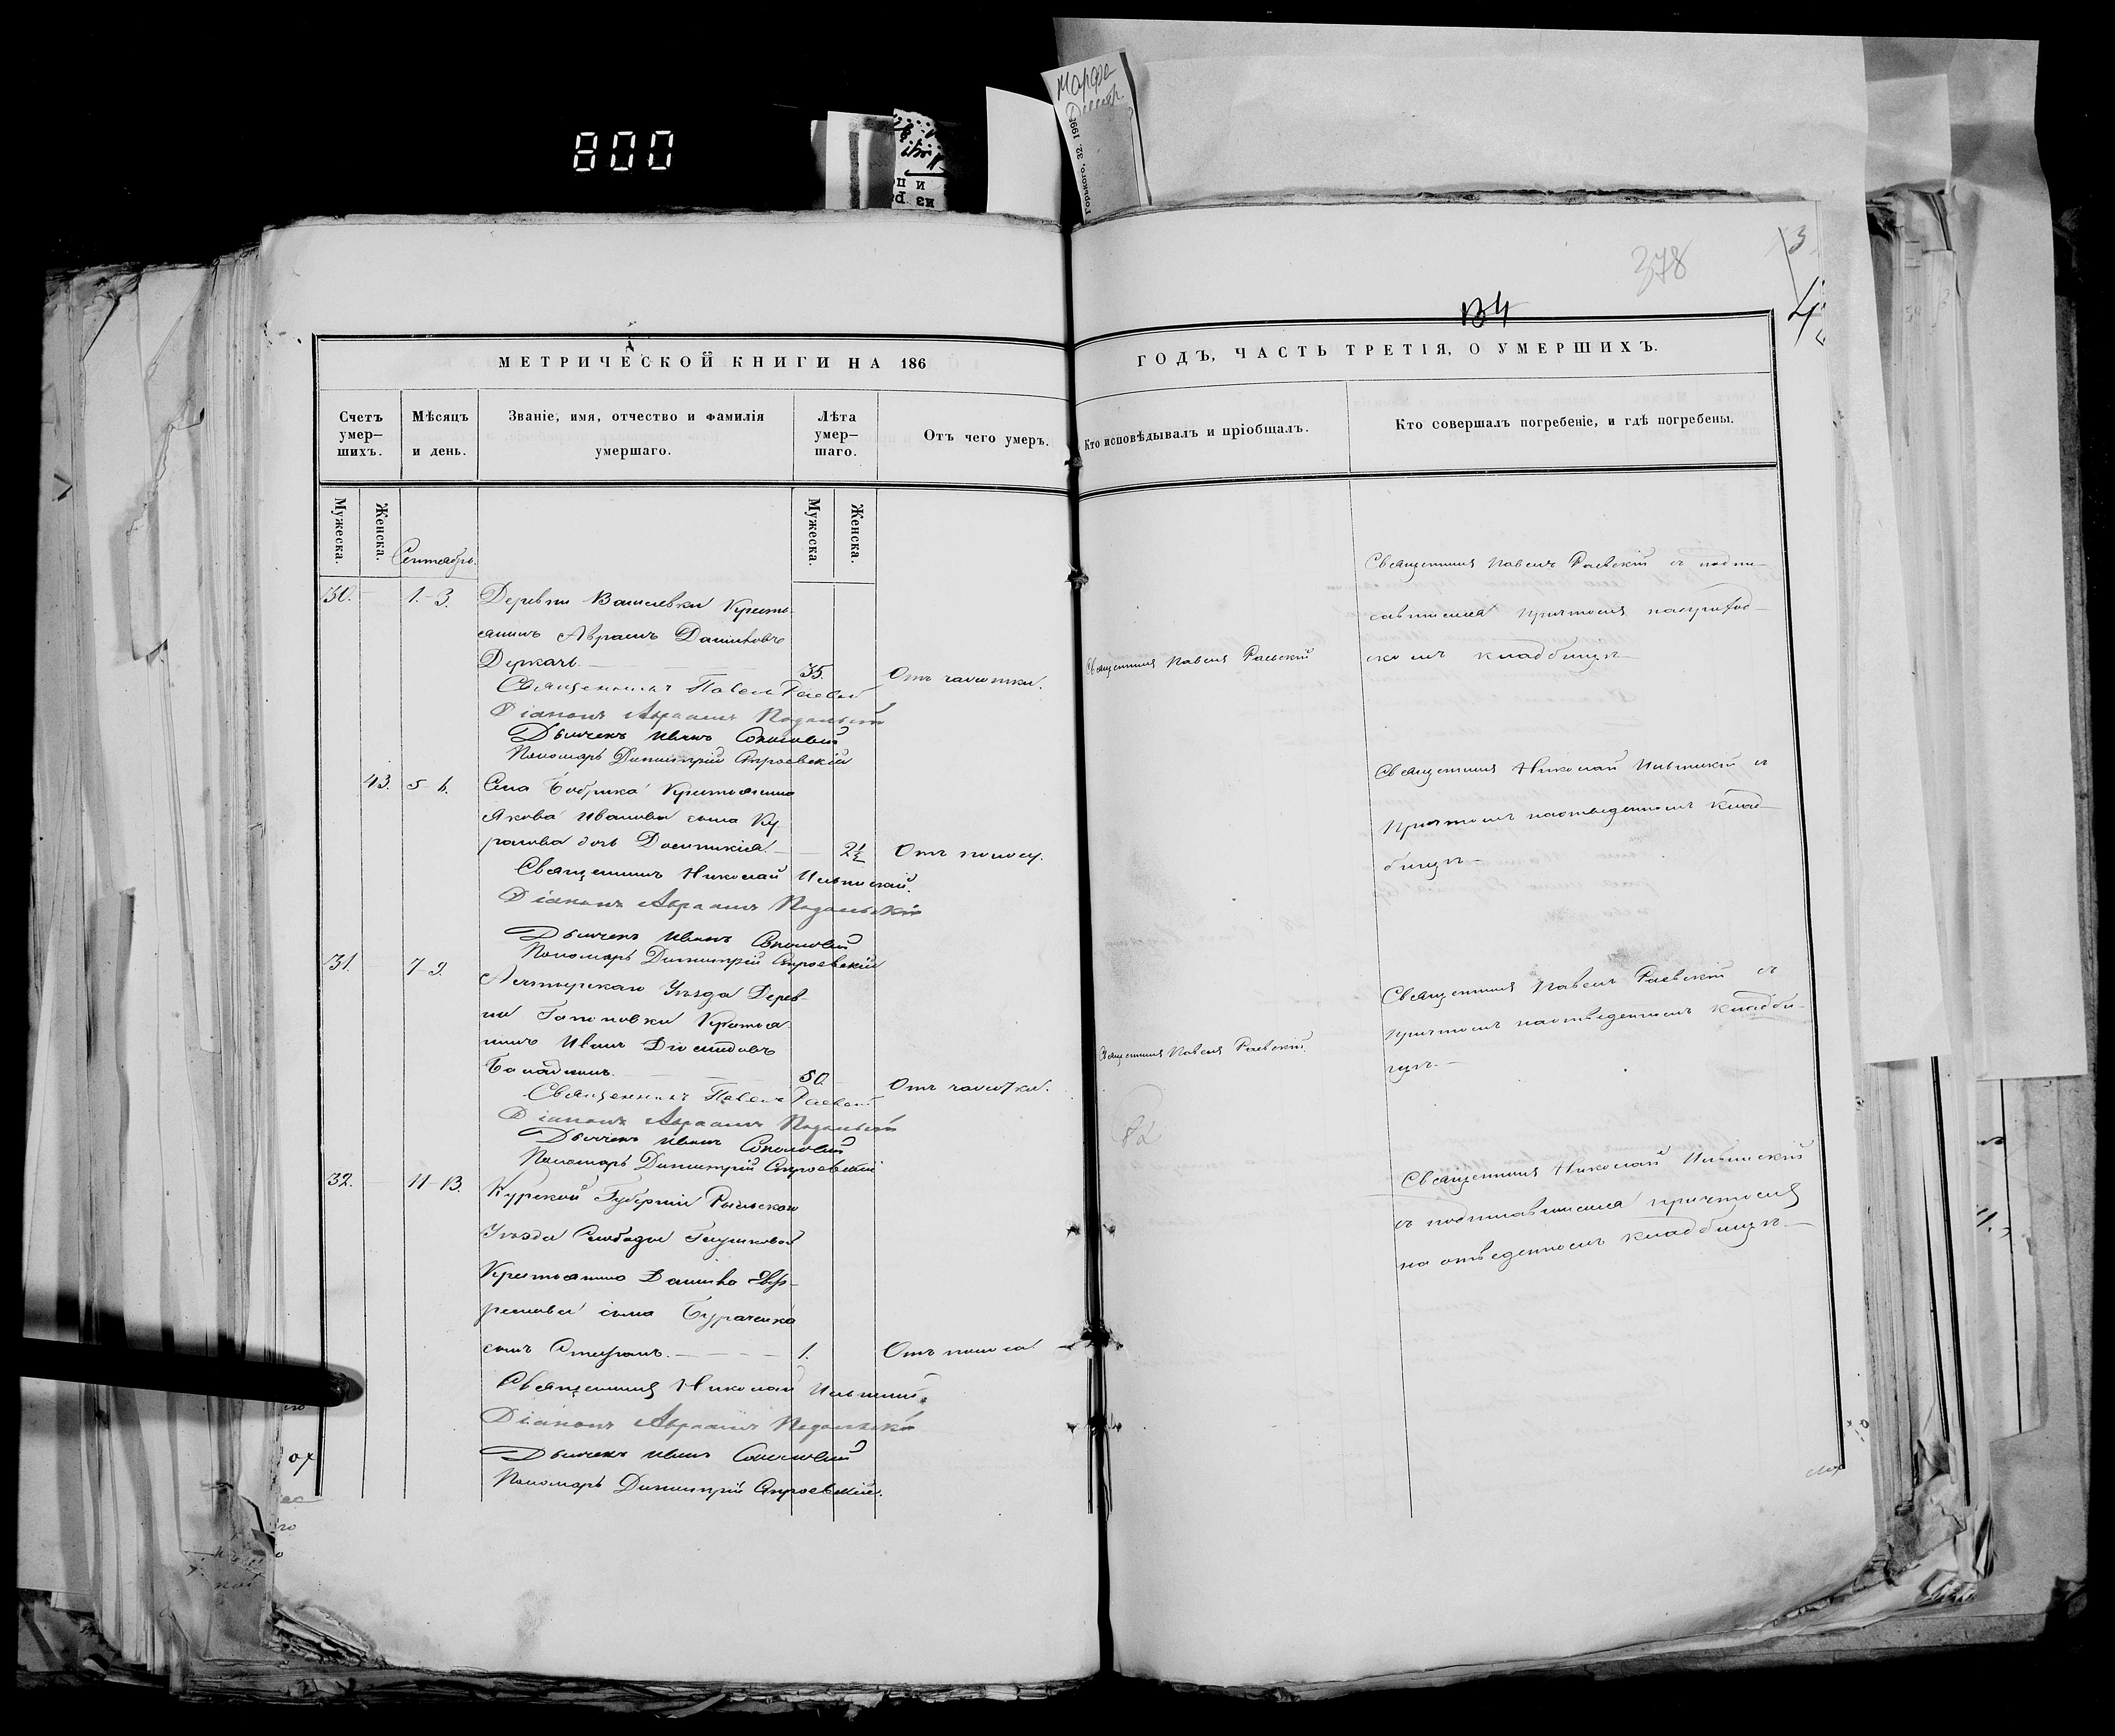 800
Марфа
Горького, 32. 199
378
3
134
4
МЕТРИЧЕСКОЙ КНИГИ НА 186
ГОДЪ, ЧАСТЬ ТРЕТІЯ, О УМЕРШИХЪ.
Счетъ умер-шихъ.
Мѣсяцъ и день.
Званіе, имя, отчество и фамилія умершаго.
Лѣта умер-шаго.
Отъ чего умеръ.
Кто исповѣдывалъ и пріобщалъ.
Кто совершалъ погребеніе, и гдѣ погребены.
Мужеска.
Женска.
Мужеска.
Женска.
Сентябрь.
30. 1.-3. Деревни Василевки Кресть-
янинъ Авраамъ Даниловъ
Деркачь. 35. Отъ чахотки. Священникъ Павелъ Раевскій
Священникъ Павелъ Раевскій съ подпи-
савшимся причтомъ на приход-
скомъ кладбищѣ
Священникъ Павелъ Раевскій
Діаконъ Авраамъ Подольскій
Дьячекъ Иванъ
Пономарь Димитрій
43. 5-6. Села Бобрика Крестьянина
Якова Иванова сына Ку-
дочь 2½ Отъ поносу.
Священникъ Николай Ильинскій съ
причтомъ на отведенномъ клад-
бищѣ
Священникъ Николай Ильинскій.
Діаконъ Авраамъ Подольскій
Дьячекъ Иванъ
Пономарь Димитрій
31. 7-9. Ахтырскаго Уѣзда Дерев-
ни Крестья-
нинъ Иванъ
50. Отъ чахотки. Священникъ Павелъ Раевскій.
Священникъ Павелъ Раевскій съ
причтомъ на отведенномъ кладби-
щѣ.
Священникъ Павелъ Раевскій
Діаконъ Авраамъ Подольскій
Дьячекъ Иванъ
Пономарь Димитрій
32. 11-13. Курской Губерніи Рыльскаго
Уѣзда Слободы Глушковой
Крестьянина Данила Еф-
ремова сына Бураченка
сынъ Стефанъ. 1. Отъ поноса
Священникъ Николай Ильинскій
съ подписавшимся причтомъ
на отведенномъ кладбищѣ
Священникъ Николай Ильинскій.
Діаконъ Авраамъ Подольскій
Дьячекъ Иванъ
Пономарь Димитрій